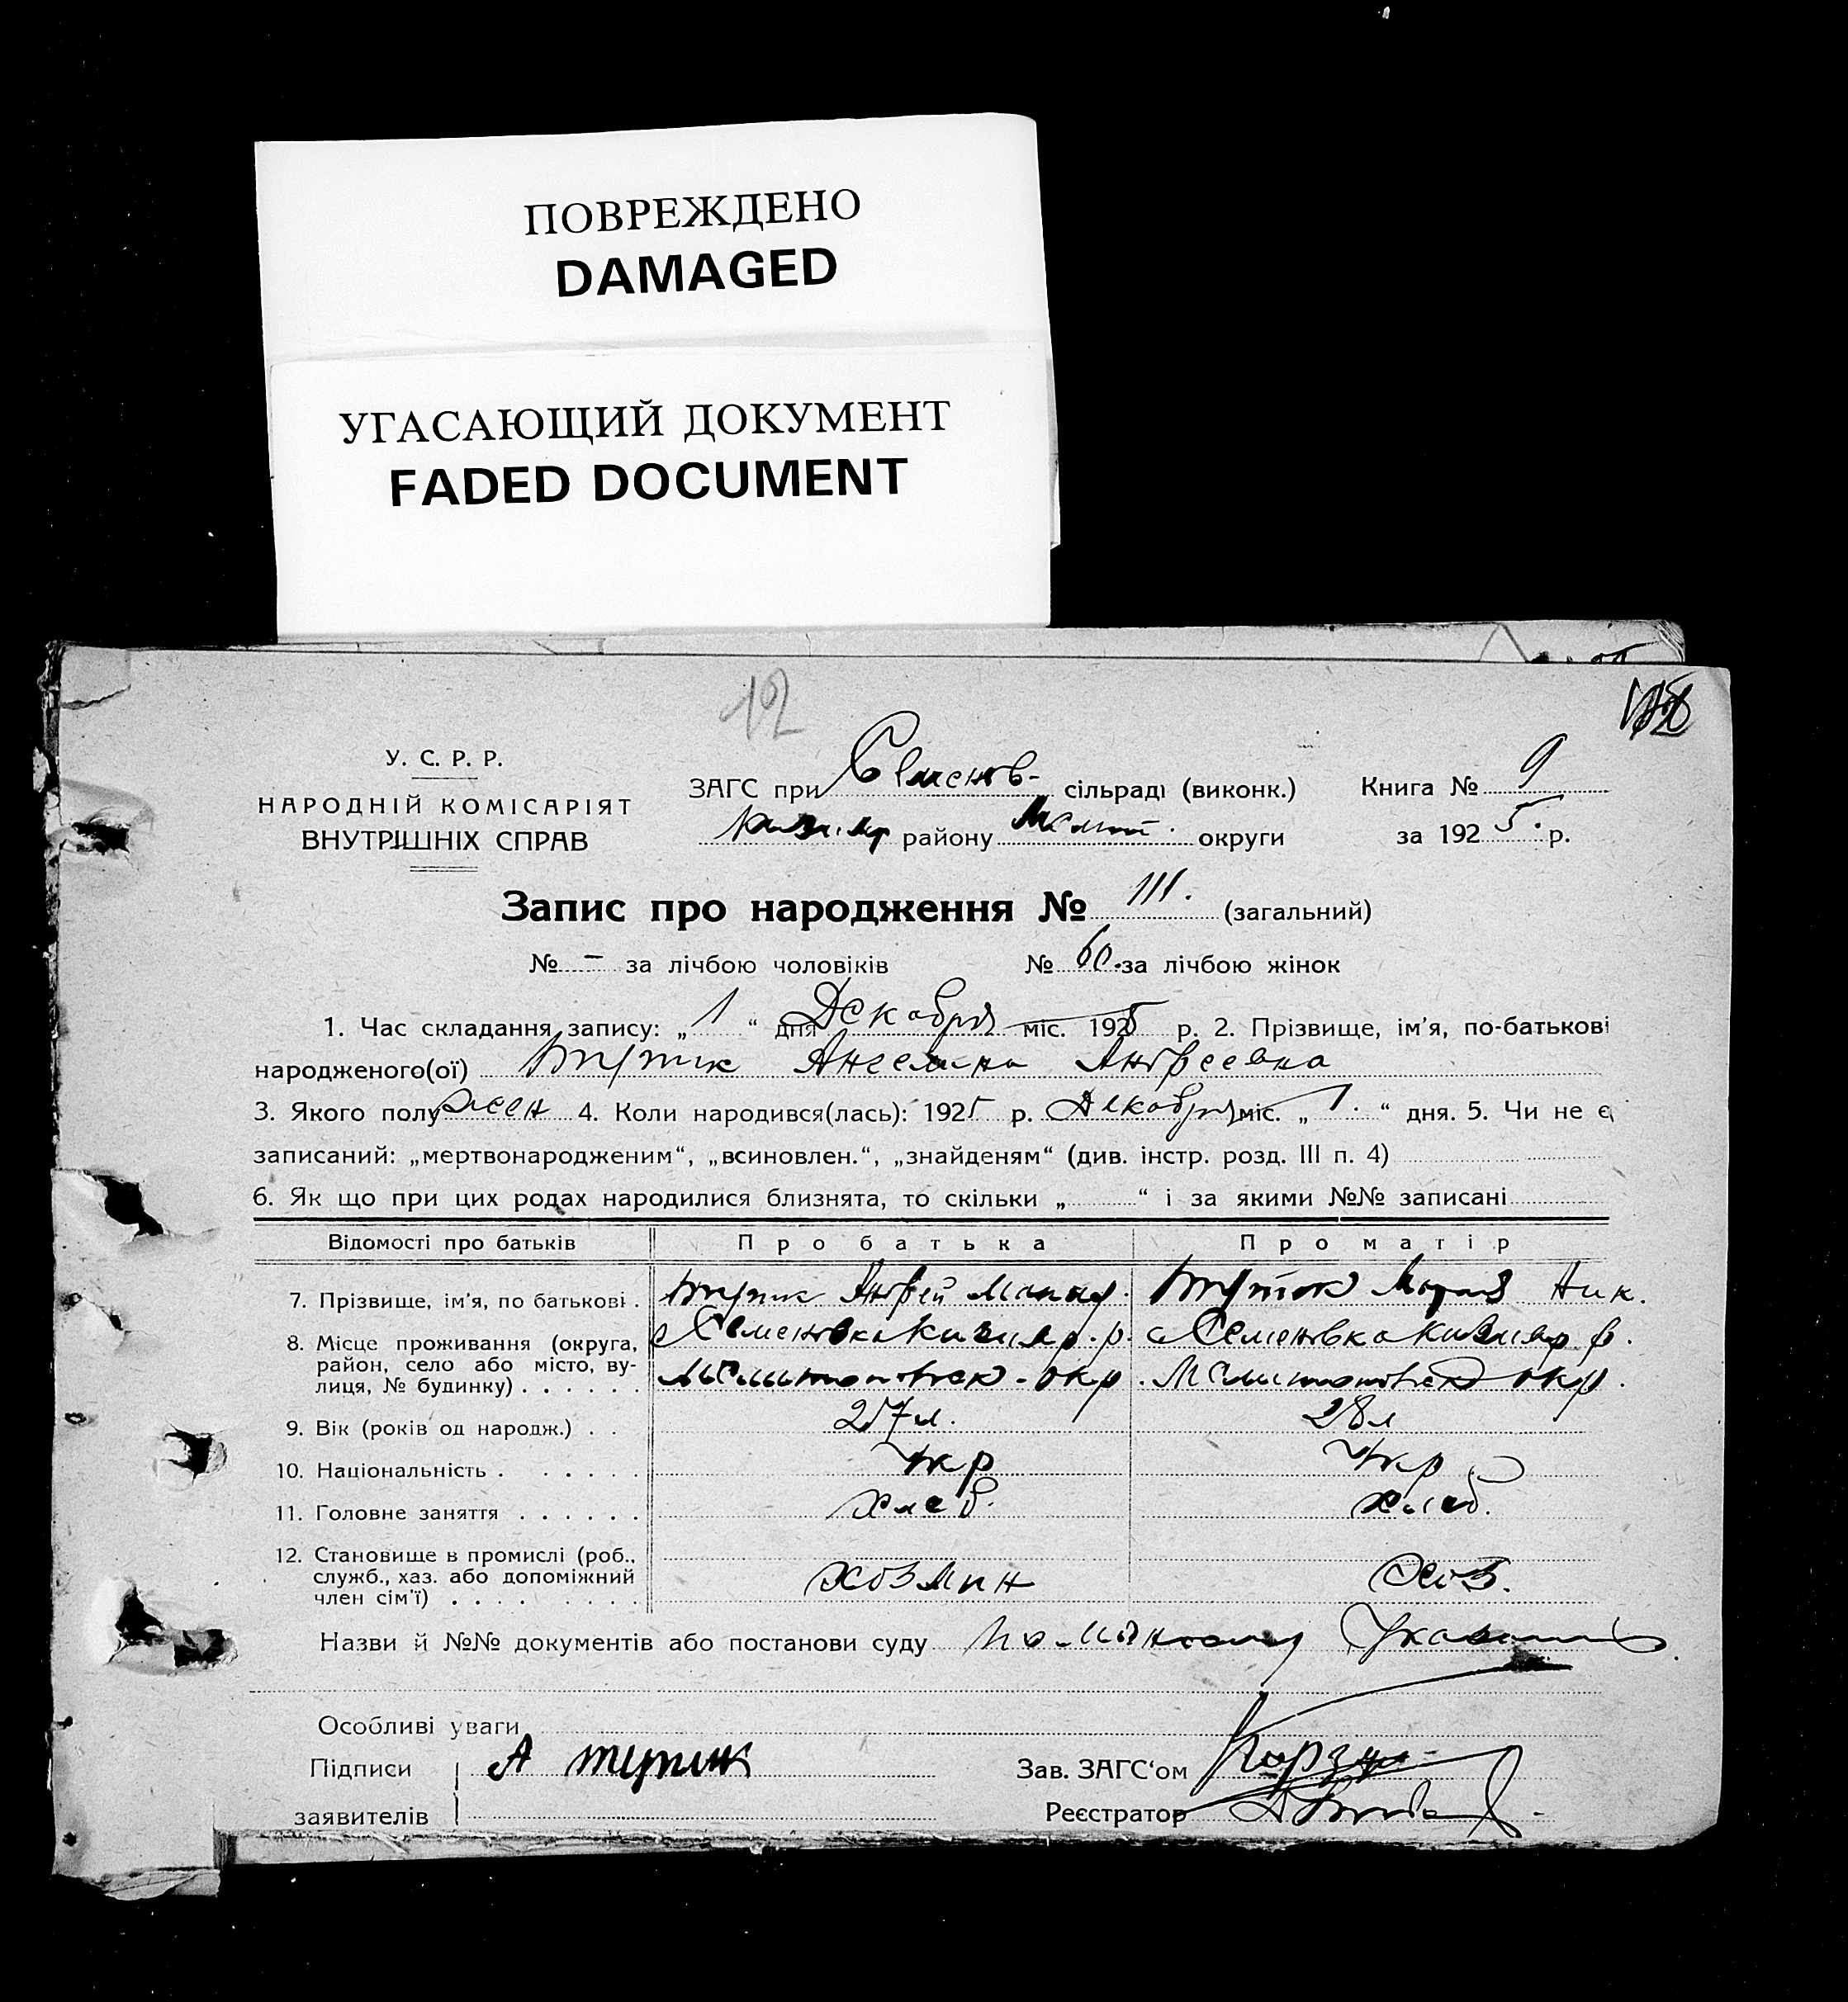 ПОВРЕЖДЕНО
DAMAGED
УГАСАЮЩИЙ ДОКУМЕНТ
FADED DOCUMENT
12
У. С. Р. Р.
НАРОДНІЙ КОМІСАРІЯТ
ВНУТРІШНІХ СПРАВ
ЗАГС при Семенов- сільраді (виконк.) Книга № 9
району Мелит. округи за 1925 р.
Запис про народження № 111. (загальний)
№ - за лічбою чоловіків № 60. за лічбою жінок
1. Час складання запису: „ 1 “ дня Декабря міс. 1925 р. 2. Прізвище, ім'я, по-батькові
народженого(ої) Ангелина Андреевна
3. Якого полу жен 4. Коли народився(лась): 1925 р. Декабря міс. „ 1. “ дня. 5. Чи не є
записаний: „мертвонародженим“, „всиновлен.“, „знайденям“ (див. інстр. розд. III п. 4)
6. Як що при цих родах народилися близнята, то скільки „ “ і за якими №№ записані
Відомості про батьків Про батька Про матір
7. Прізвище, ім'я, по батькові . Андрей Макар. Мария Ник.
8. Місце проживання (округа, с Семеновка Кизияр. р. с Семеновка Кизияр р.
район, село або місто, ву-
лиця, № будинку) . . . . . . Мелитопольск. окр. Мелитопольск окр.
9. Вік (років од народж.) . . 27 л. 28 л
10. Національність . . . . . . Укр Укр
11. Головне заняття . . . . . . хлеб. хлеб.
12. Становище в промислі (роб.,
служб., хаз. або допоміжний хозяин хоз.
член сім'ї) . . . . . . . .
Назви й №№ документів або постанови суду по личному
Особливі уваги
Підписи А тупик Зав. ЗАГС'ом
заявителів Реєстратор